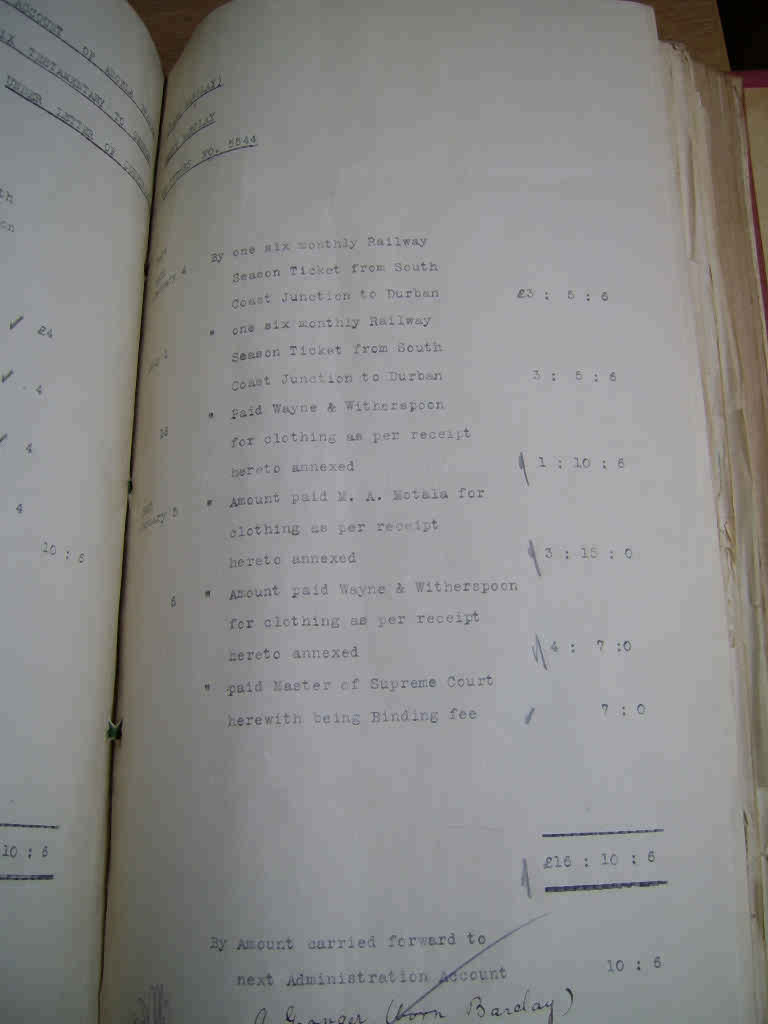 ACCOUNT OF ANGELA
TESTAMENTARY TO
UNDER LETTER OF
✓ £4
✓ 4
✓ 4
4
10 : 6
10 : 6
NO. 5544
4 By one six monthly Railway
Season Ticket from South
Coast Junction to Durban £3 : 5 : 6
1 " one six monthly Railway
Season Ticket from South
Coast Junction to Durban 3 : 5 : 6
16 " Paid Wayne & Witherspoon
for clothing as per receipt
hereto annexed 1 : 10 : 6
5 " Amount paid M. A. Motala for
clothing as per receipt
hereto annexed 3 : 15 : 0
6 " Amount paid Wayne & Witherspoon
for clothing as per receipt
hereto annexed 4 : 7 :0
" paid Master of Supreme Court
herewith being Binding fee ✓ 7 : 0
£16 : 10 : 6
By Amount carried forward to
next Administration Account 10 : 6
Granger (born Barclay)